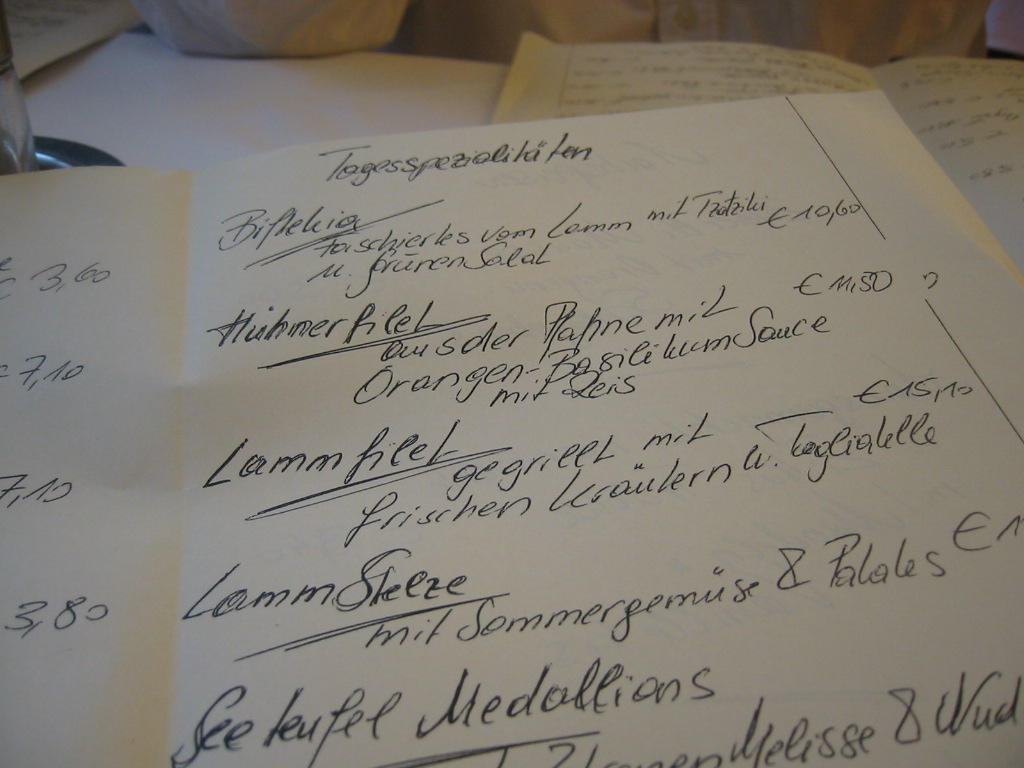 Tagesspezialitäten
Biftekia
faschiertes vom Lamm mit Tzatziki
u. grünen Salat € 10,60
Hühnerfilet € 11,50
aus der Pfanne mit
Orangen-Basilikum Sauce
mit Reis
Lammfilet € 15,10
gegrillt mit
frischen Kräutern u. Tagliatelle
Lamm Stelze
mit Sommergemüse & Patates € 1
Seeteufel Medallions
Zitronen Melisse & Nud
€ 3,60
€ 7,10
7,10
3,80